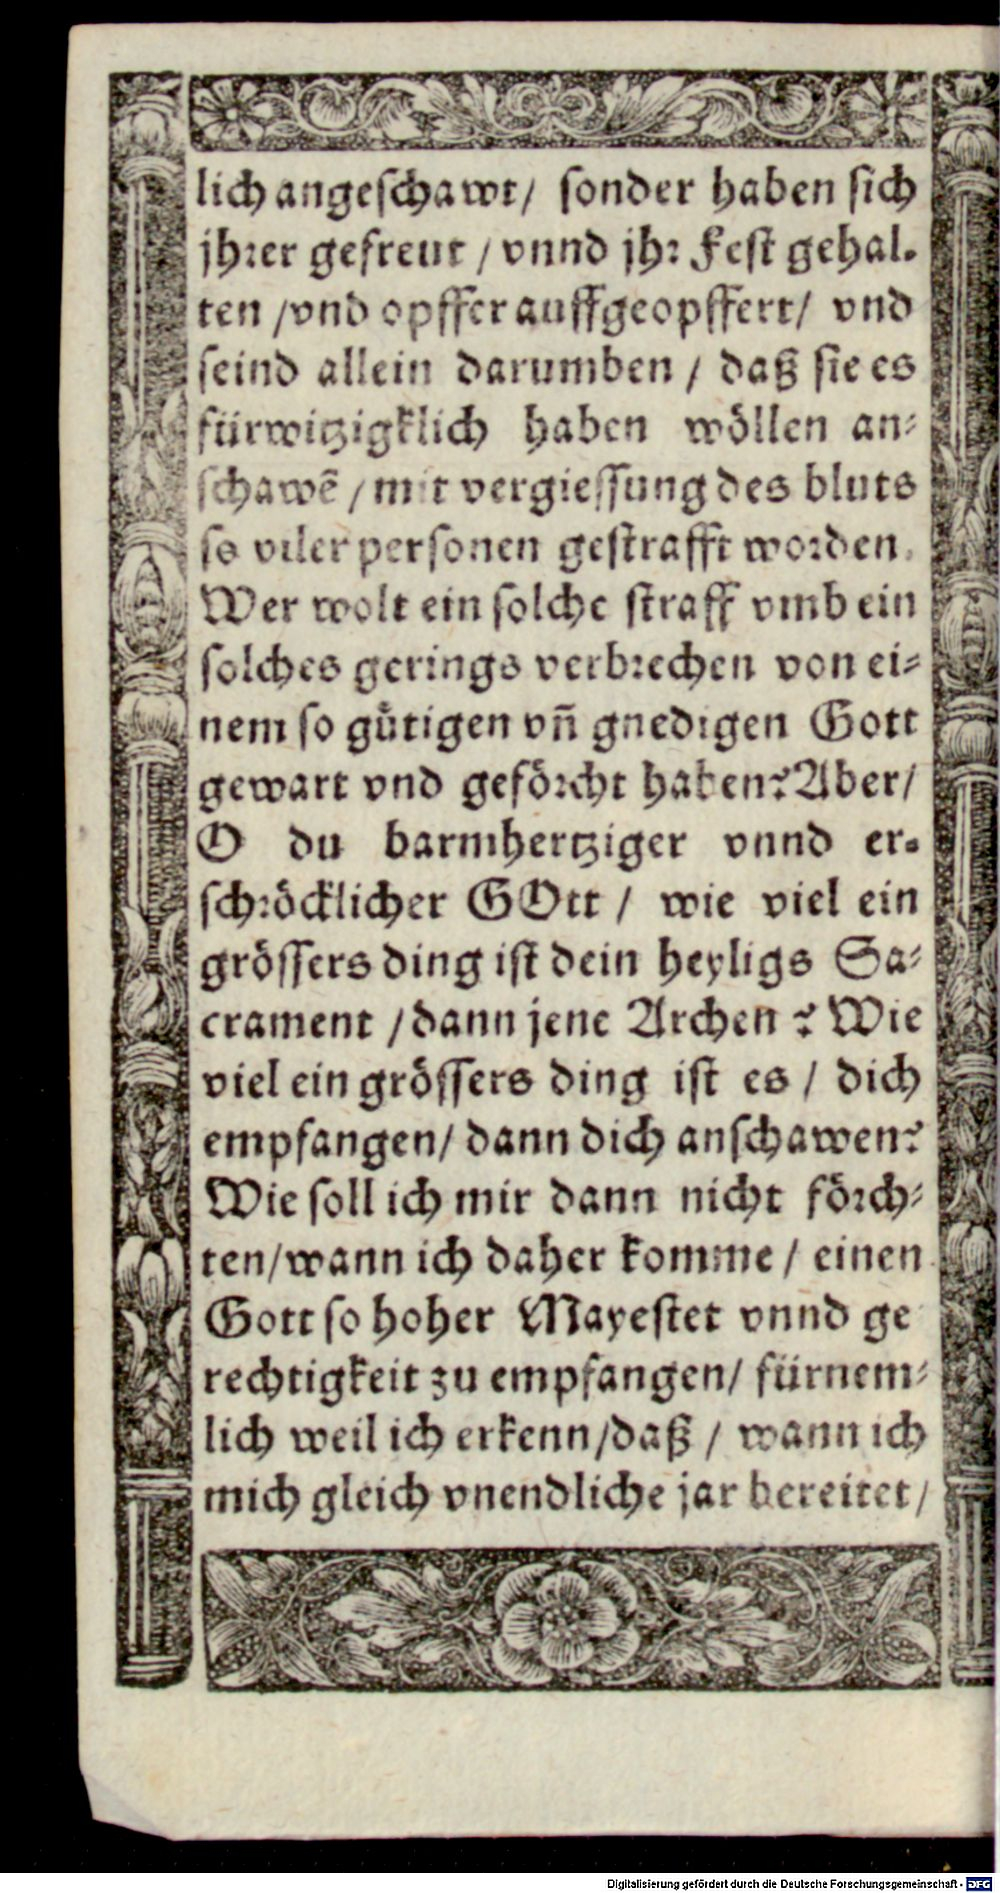 lich angeschawt/ sonder haben sich
jhrer gefreut / vnnd jhr Fest gehal-
ten /vnd opffer auffgeopffert/ vnd
seind allein darumben / daß sie es
fürwitzigklich haben wöllen an-
schawẽ / mit vergiessung des bluts
so viler personen gestrafft worden.
Wer wolt ein solche straff vmb ein
solches gerings verbrechen von ei-
nem so gütigen vñ gnedigen Gott
gewart vnd geförcht haben? Aber/
O du barmhertziger vnnd er-
schröcklicher GOtt / wie viel ein
grössers ding ist dein heyligs Sa-
crament /dann jene Archen ? Wie
viel ein grössers ding ist es / dich
empfangen/ dann dich anschawen?
Wie soll ich mir dann nicht förch-
ten/wann ich daher komme / einen
Gott so hoher Mayestet vnnd ge
rechtigkeit zu empfangen/ fürnem-
lich weil ich erkenn/daß / wann ich
mich gleich vnendliche jar bereitet /
Digitalisierung gefördert durch die Deutsche Forschungsgemeinschaft - DFG